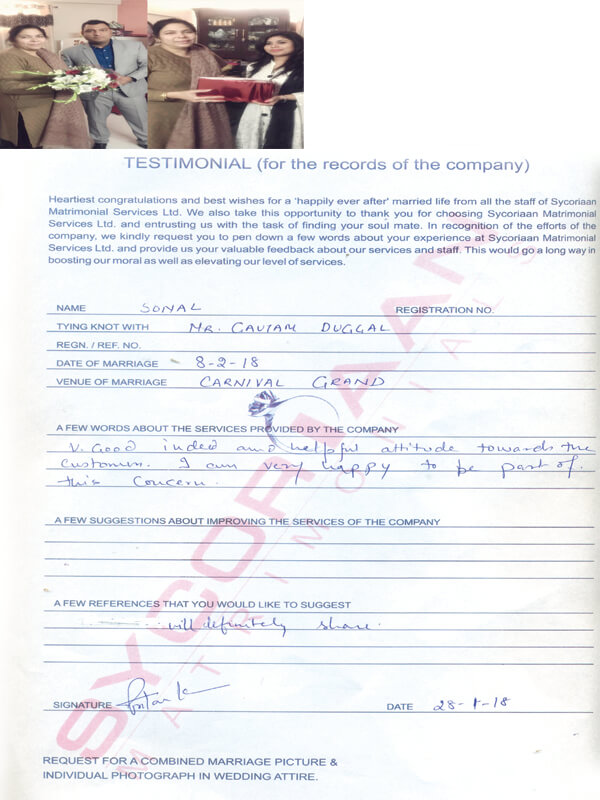 TESTIMONIAL (for the records of the company)
Heartiest congratulations and best wishes for a 'happily ever after' married life from all the staff of Sycoriaan
Matrimonial Services Ltd. We also take this opportunity to thank you for choosing Sycoriaan Matrimonial
Services Ltd. and entrusting us with the task of finding your soul mate. In recognition of the efforts of the
company, we kindly request you to pen down a few words about your experience at Sycoriaan Matrimonial
Services Ltd. and provide us your valuable feedback about our services and staff. This would go a long way in
boosting our moral as well as elevating our level of services.
NAME SONAL REGISTRATION NO.
TYING KNOT WITH MR. GAUTAM DUGGAL
REGN. / REF. NO.
DATE OF MARRIAGE 8-2-18
VENUE OF MARRIAGE CARNIVAL GRAND
A FEW WORDS ABOUT THE SERVICES PROVIDED BY THE COMPANY
V. Good indeed and helpful attitude towards the
customers. I am very happy to be part of
this concern.
A FEW SUGGESTIONS ABOUT IMPROVING THE SERVICES OF THE COMPANY
A FEW REFERENCES THAT YOU WOULD LIKE TO SUGGEST
will definitely share.
SIGNATURE DATE 28-1-18
REQUEST FOR A COMBINED MARRIAGE PICTURE &
INDIVIDUAL PHOTOGRAPH IN WEDDING ATTIRE.
SYCORIAAN
MATRIMONIALS